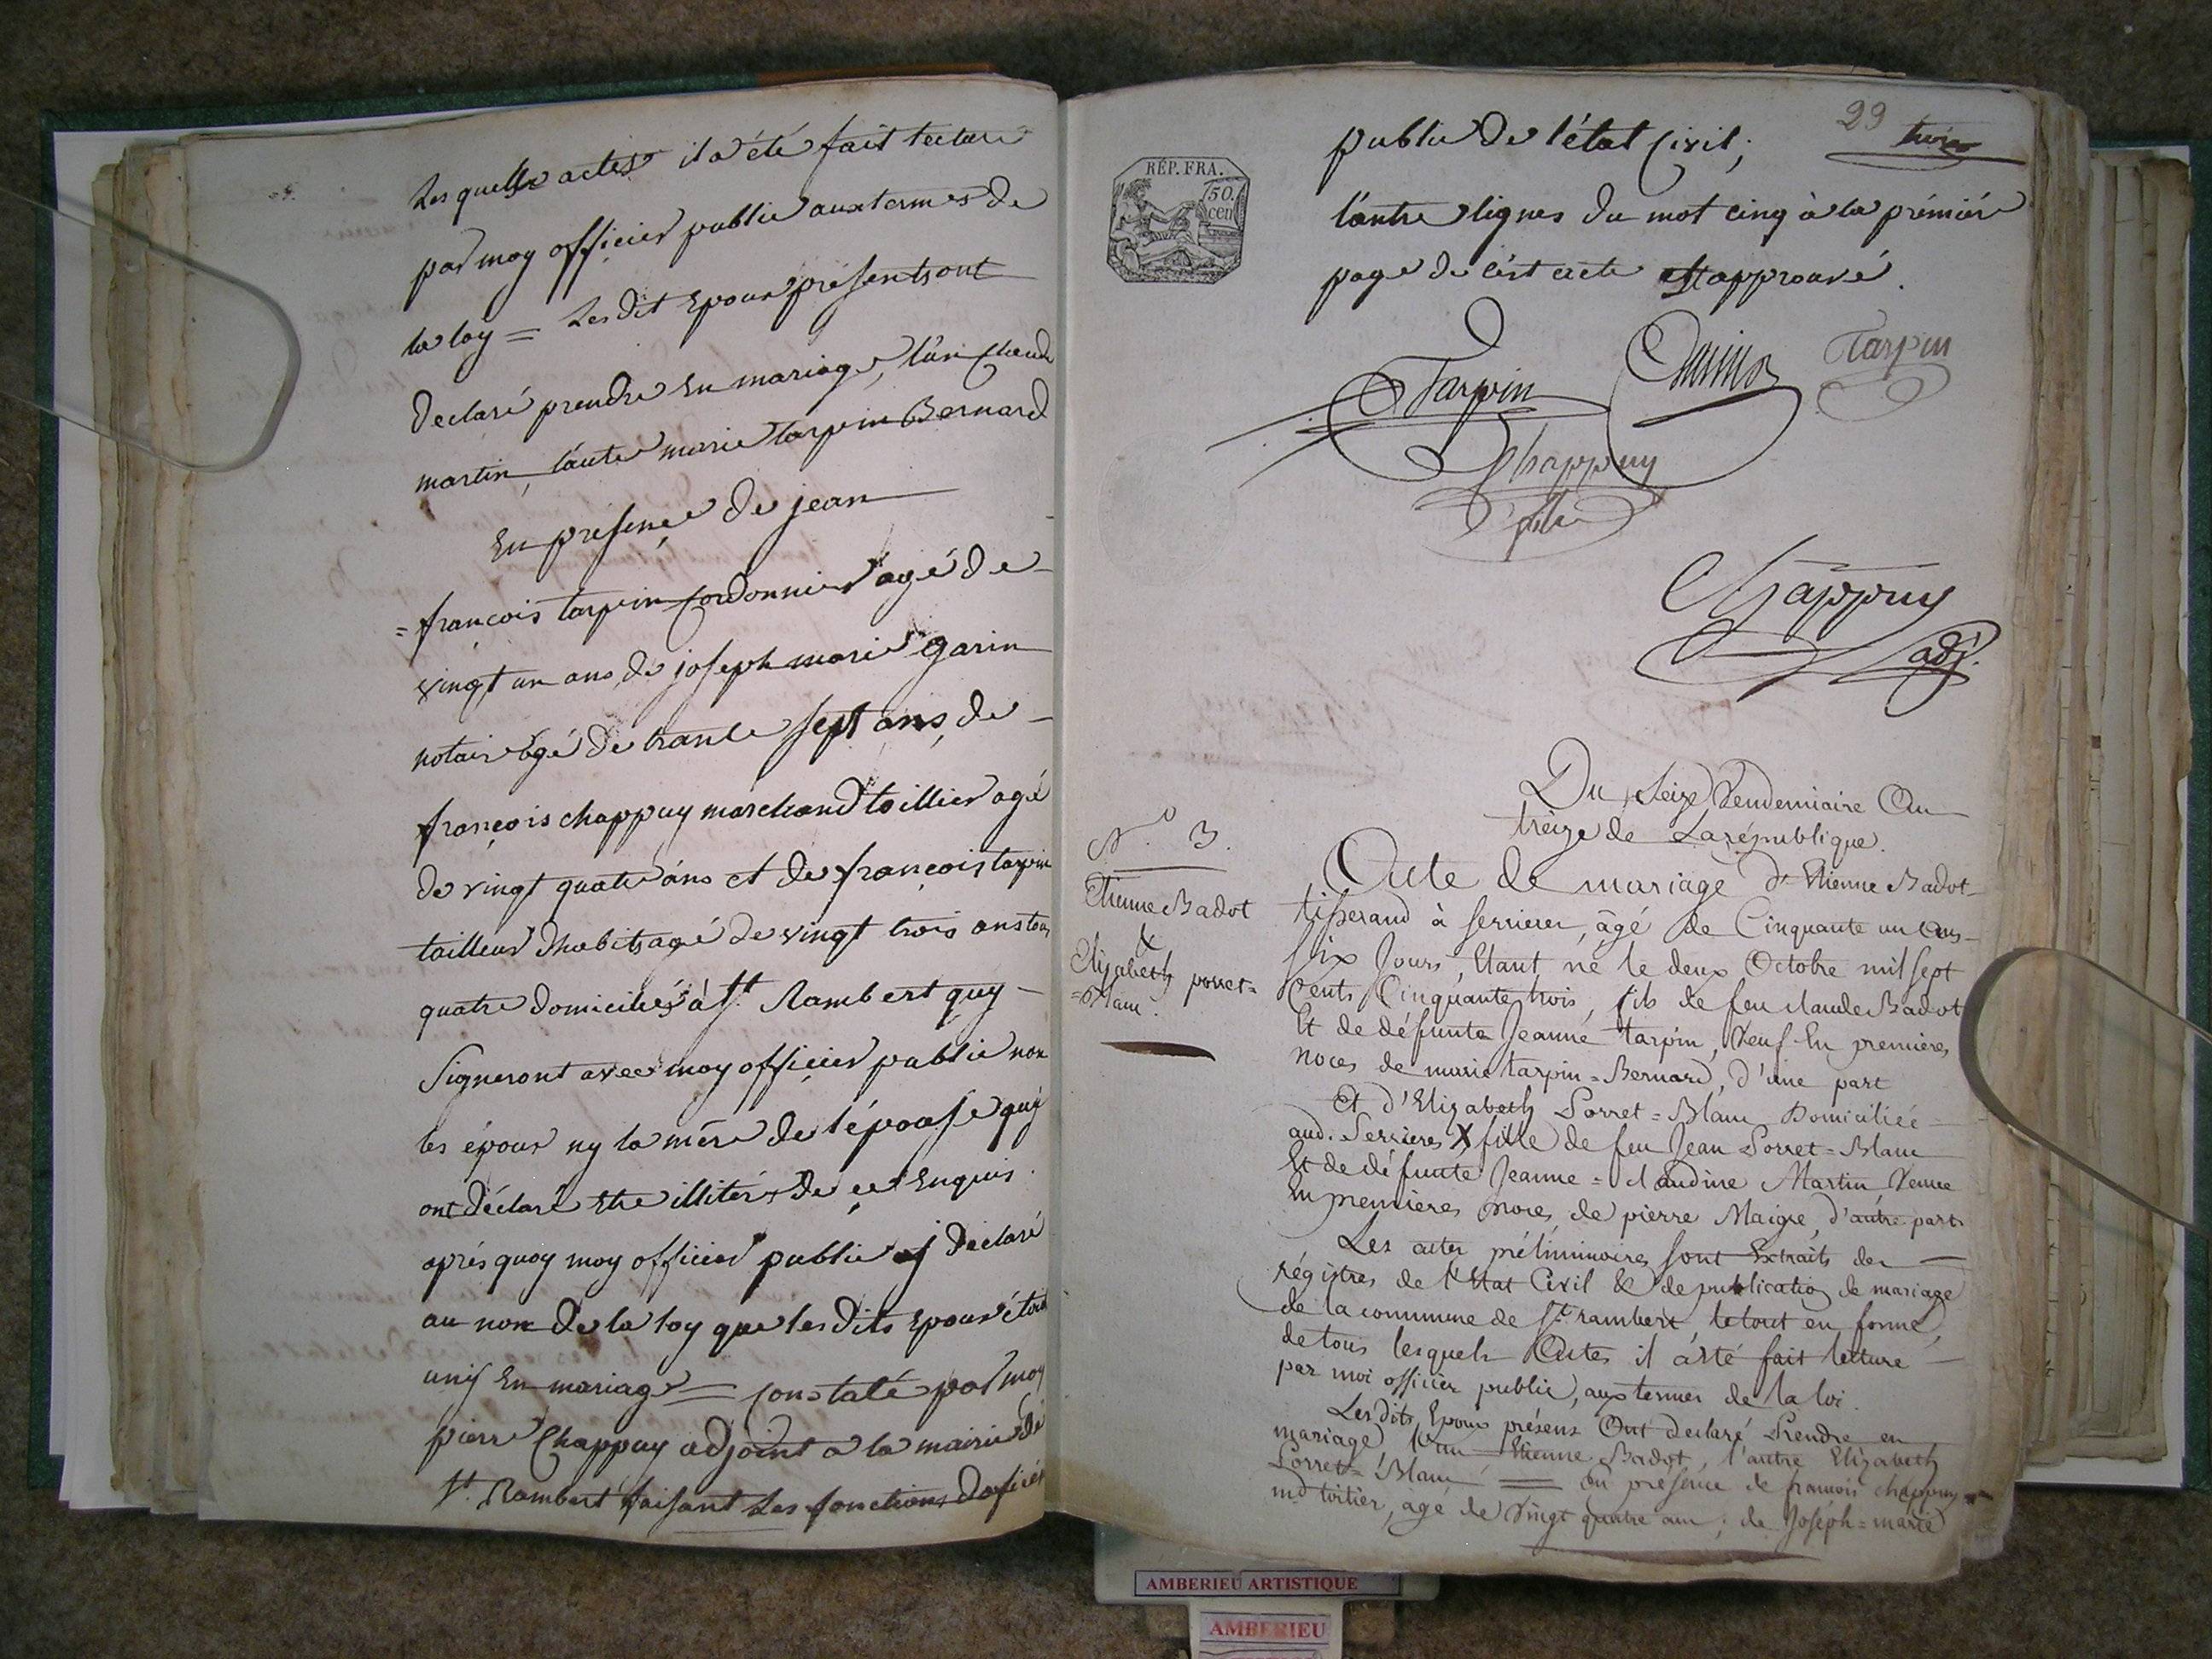 Les quelles actes il a été fait lecture
par moy officier public aux termes de
la loy = Les dit Epoux présents ont
declaré prendre En mariage, l'un Claude
martin, l'autre marie tarpin Bernard
En présence de jean
= françois tarpin Cordonnier agé de
vingt un ans, de joseph marie garin
notaire agé de trante sept ans, de
françois chappuy marchand toillier agé
de vingt quatre ans et de françois tarpin
tailleur d'habits agé de vingt trois ans tous
quatre domiciliés à St. Rambert quy
Signeront avec moy officier public non
les époux ny la mère de l'épouse quy
ont déclaré Etre illiterés de ce Enquis.
après quoy moy officier public ej declaré
au nom de la loy que les dits Epoux étoit
unis En mariage = constaté par moy
pierre Chappuy adjoint a la mairie de
St. Rambert faisant Les fonctions d'oficier
29
public de l'état Civil;
RÉP. FRA.
50. cen
l'antre lignes du mot cinq à la prémiére
page de cést acte Est approuvé.
Tarpin
Tarpin
Chappuy
fils
Chappuy
adj.
Du Seize Vendemiaire An
treize de La république.
N.o 3.
Etienne Badot
&
Elizabeth porret=
=Blanc.
Acte de mariage d'Etienne Badot
tisserand à serrieres, âgé de Cinquante un Ans
six Jours, Etant né le deux Octobre mil sept
Cents Cinquante trois, fils de feu claude Badot
Et de défunte Jeanne tarpin, Veuf En premieres
noces de marie tarpin=Bernard, d'une part
Et d'Elizabeth Porret=Blanc Domiciliée
aud. Serrieres X fille de feu Jean Porret=Blanc
Et de défunte Jeanne=claudine Martin Veuve
En premières noces de pierre Maigre, d'autre part.
Les actes préliminaires sont Extraits des
régistres de l'Etat Civil & de publication de mariage
de la commune de St. rambert, le tout en forme,
de tous lesquels Actes il a été fait lecture
par moi officier public, aux termes de la loi.
Les dits Epoux présens Ont declaré Prendre en
mariage, l'un Etienne Badot, l'autre Elizabeth
Porret=Blanc = En présence de francois chappuy
md toitier, agé de Vingt quatre ans; de Joséph=marie
AMBERIEU ARTISTIQUE
AMBERIEU